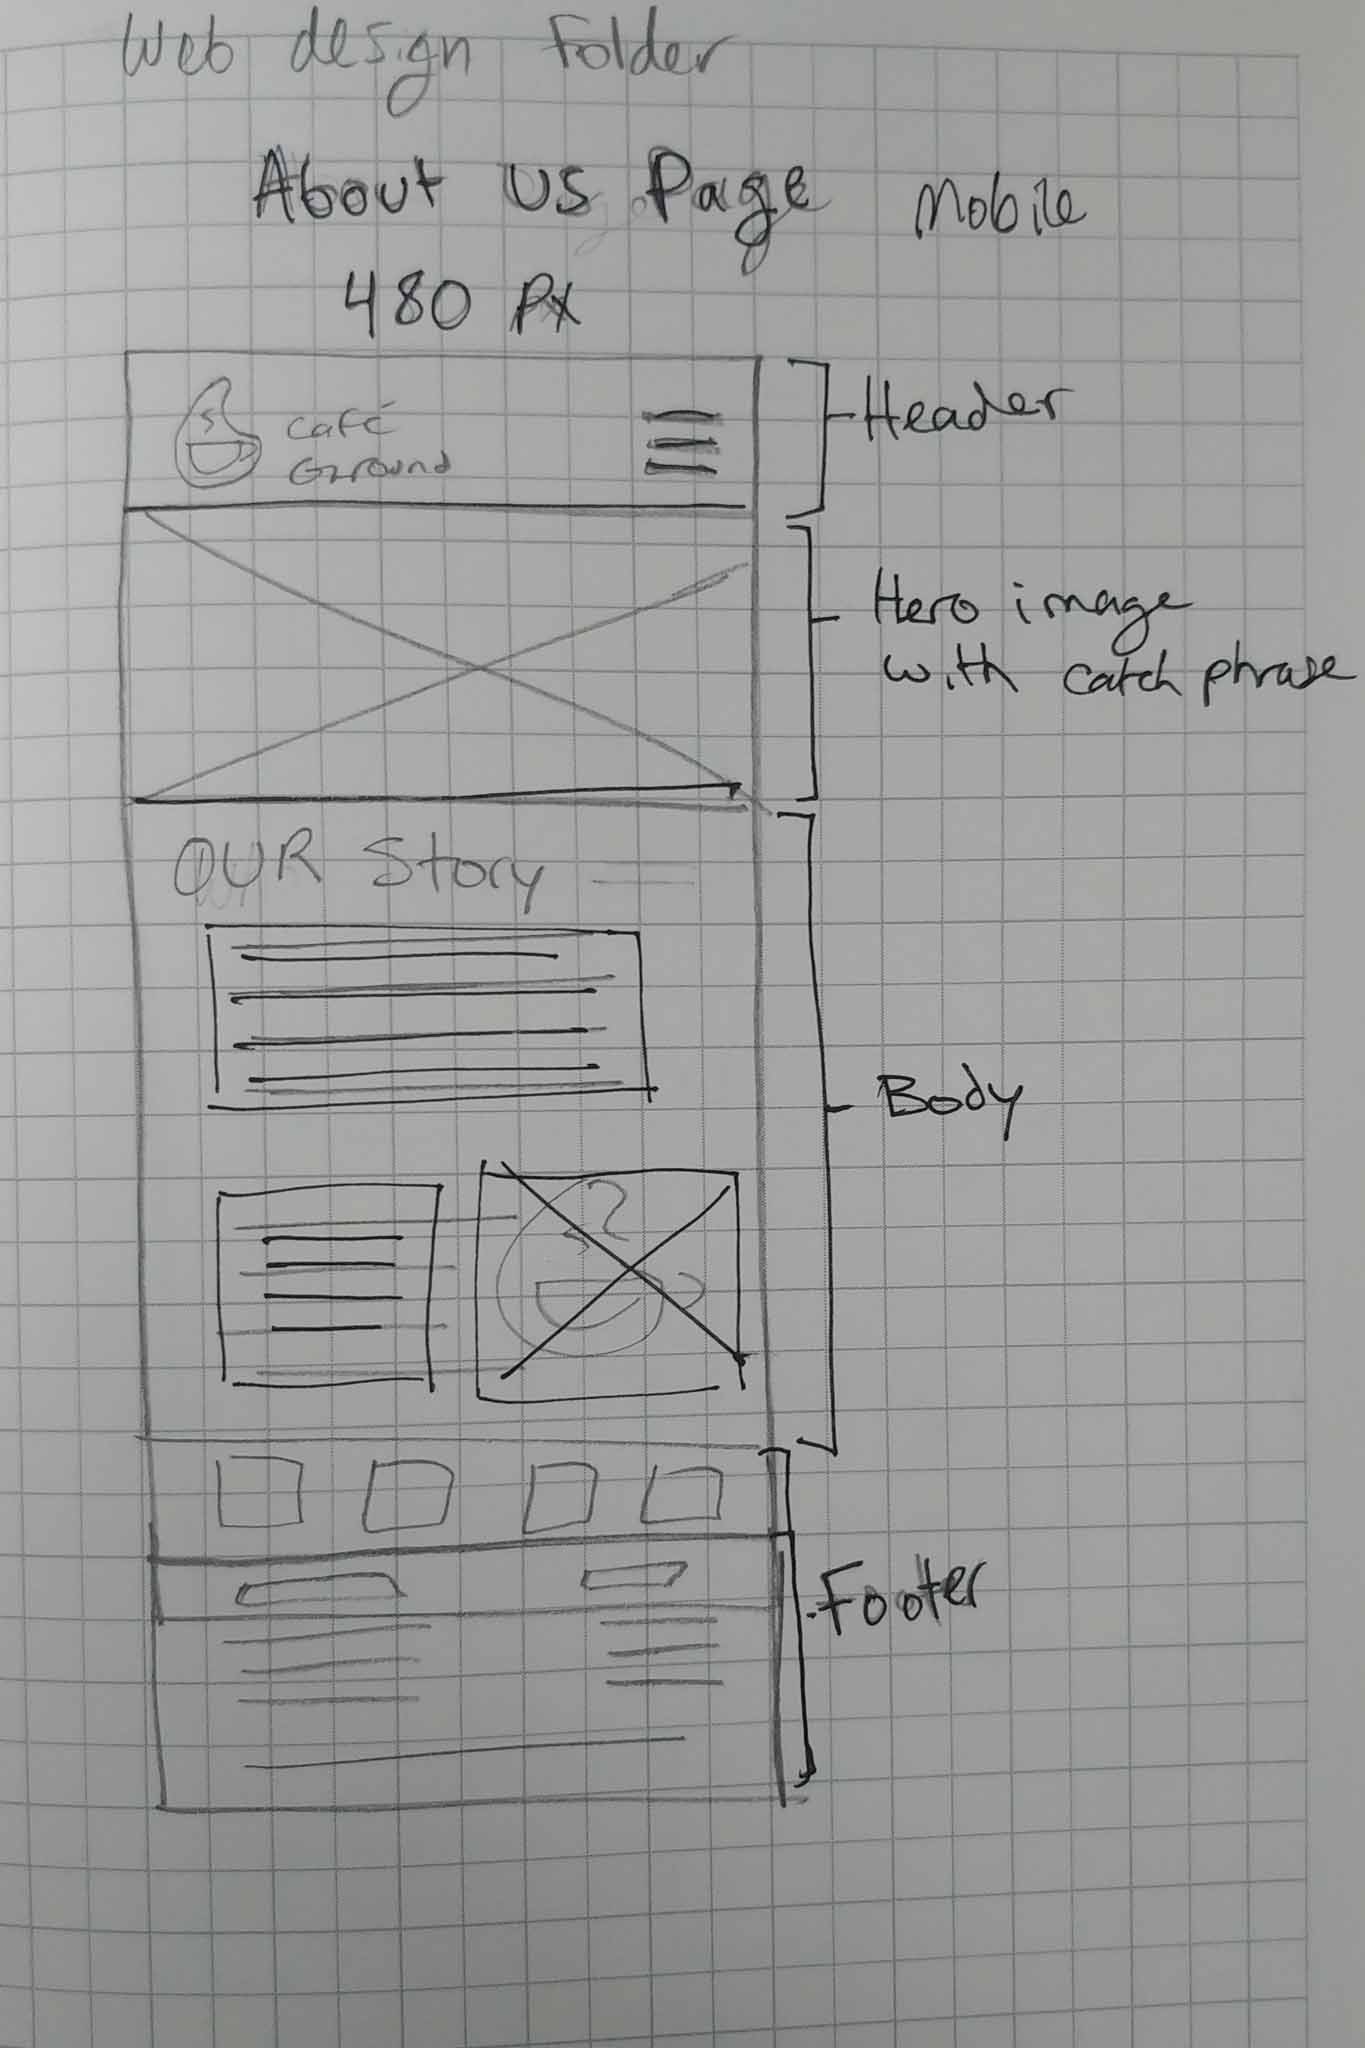 Web design Folder
About Us Page Mobile
480 Px
Café
Ground
Header
Hero image
with catch phrase
OUR Story
Body
Footer